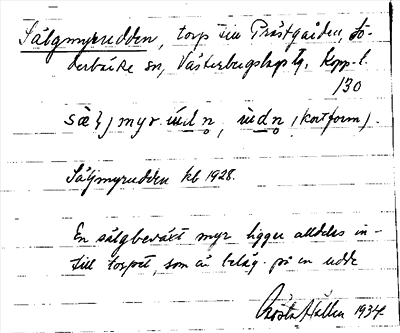 Sälgmyrudden, torp till Prästgården, Sö-
derbärke sn, Västerbergslags tg, Kopp. l.
130
sæljmyr ùdn, ùdn (kortform).
Säljmyrudden kb 1928.
En sälgbeväxt myr ligger alldeles in-
till torpet, som är beläg. på en udde
Gösta Hallen 1934